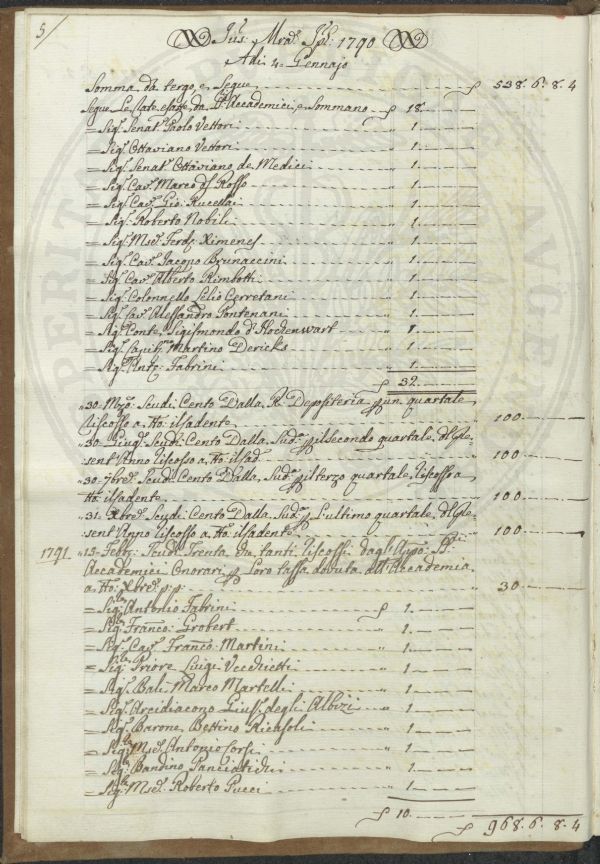 5/
Jus: Mrao: Spl: 1790
Adi 4. Gennajo
Somma da tergo, e Segue ƒ 538. 6. 8. 4
Segue Le state esatte da SS.ri Accademici, e Sommano ƒ 18.
= Sig.r Senat.r Paolo Vettori 1.
= Sig.r Ottaviano Vettori 1.
= Sig.r Senat.r Ottaviano de Medici 1.
= Sig.r Cav.r Marco del Rosso 1.
= Sig.r Cav.r Gio: Rucellai 1.
= Sig.r Roberto Nobili 1.
= Sig.r M.se Ferd.o Ximenes 1.
= Sig.r Cav.r Jacopo Brunaccini 1.
= Sig.r Cav.r Alberto Rimbotti 1.
= Sig.r Colonnello Lelio Cerretani 1.
= Sig.r Cav.r Alessandro Pontenani 1.
= Sig.r Conte Sigismondo d'Hochenwart 1.
= Sig.r Capit.no Martino Dericks 1.
= Sig.r Ant.o Fabrini 1.
ƒ 32.
" 30. Mzo: Scudi Cento Dalla R. Depositeria p un quartale
riscosso a Ho: il sadente " 100
" 30. Giug.o Scudi Cento Dalla Sud.a p il secondo quartale del Pre-
sent' Anno riscosso a Ho: il sad. " 100
" 30. 7bre Scudi Cento Dalla Sud.a p il terzo quartale, riscosso a
Ho: il sadente " 100
" 31. Xbre Scudi Cento Dalla Sud.a p L'ultimo quartale del Pre-
sent' Anno riscosso a Ho: il sadente " 100
1791. " 15. Febb: Scudi Trenta da tanti riscossi dagl' App: SS.ri
Accademici Onorari p Loro tassa dovuta all' Accademia
a Ho: Xbre p:p: " 30
= Sig.r Antonio Fabrini ƒ 1.
= Sig.r Franco: Grobert " 1.
= Sig.r Cav.r Franco: Martini " 1.
= Sig.r Priore Luigi Vecchietti " 1.
= Sig.r Balì Marco Martelli " 1.
= Sig.r Arcidiacono Gius.e degli Albizi " 1.
= Sig.r Barone Bettino Ricasoli " 1.
= Sig.r M.se Antonio Corsi " 1.
= Sig.r Bandino Panciatichi " 1.
= Sig.r M.se Roberto Pucci " 1.
ƒ 10.
ƒ 968. 6. 8. 4